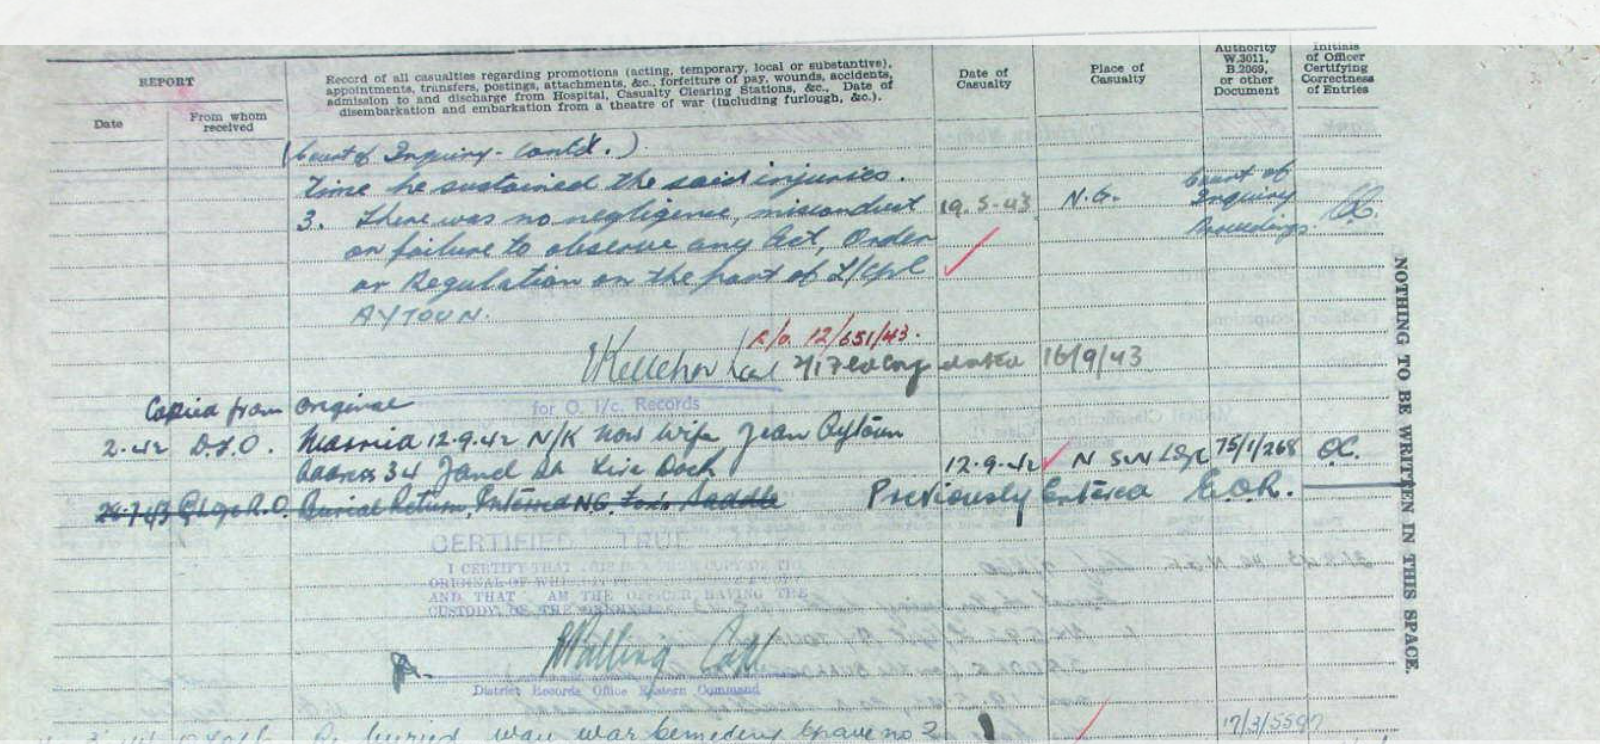 REPORT
Record of all casualties regarding promotions (acting, temporary, local or substantive),
appointments, transfers, postings, attachments, &c., forfeiture of pay, wounds, accidents,
admission to and discharge from Hospital, Casualty Clearing Stations, &c., Date of
disembarkation and embarkation from a theatre of war (including furlough, &c.).
Date
From whom
received
Date of
Casualty
Place of
Casualty
Authority
W.3011,
B.2069,
or other
Document
Initials
of Officer
Certifying
Correctness
of Entries
(Court of Inquiry - Contd.)
time he sustained the said injuries.
3. There was no negligence, misconduct 19.5.43 N.G. Court of Inquiry Proceedings.
or failure to observe any Act, Order
or Regulation on the part of L/Cpl
AYTOUN.
R/O. 12/651/43.
dated 16/9/43
for O. I/c. Records
Copied from Original
2.42 D.F.O. Married 12.9.42 N/K now Wife Jean Aytoun
Address 34 St 12.9.42 N SW L of C 75/1/268
Burial Return, Interred N.G. Saddle Previously Entered
CERTIFIED TRUE
I CERTIFY THAT THIS IS A TRUE COPY OF THE
ORIGINAL OF WHICH
AND THAT I AM THE OFFICER HAVING THE
CUSTODY OF THE ORIGINAL
District Records Office Eastern Command
Re buried war Cemetery Grave no 2 17/3/5597
NOTHING TO BE WRITTEN IN THIS SPACE.